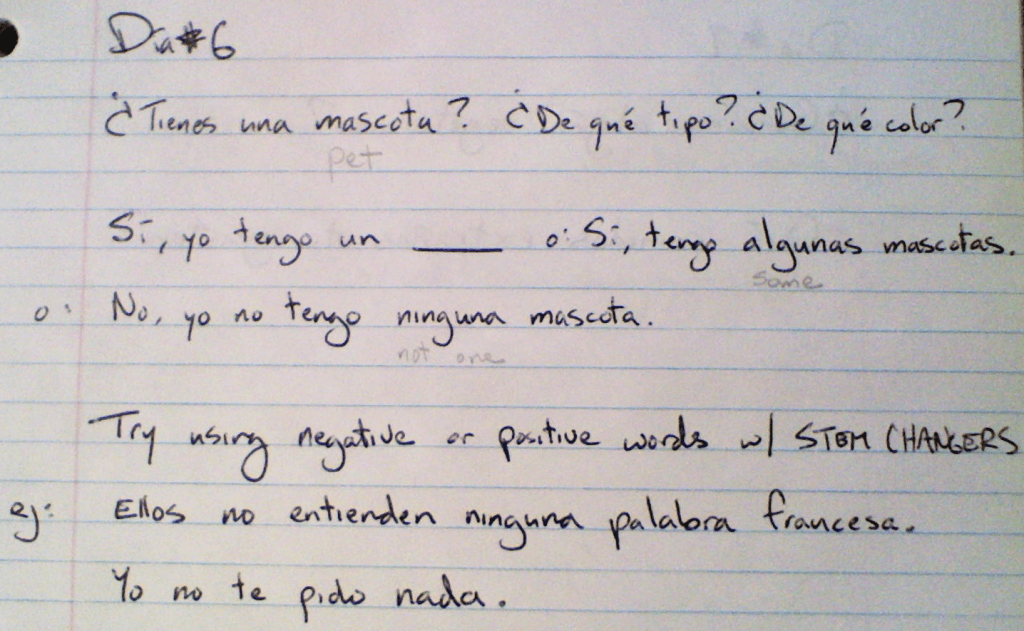 Dia #6
¿Tienes una mascota? ¿De qué tipo? ¿De qué color?
pet
Sí, yo tengo un ______ o: Sí, tengo algunas mascotas.
some
o: No, yo no tengo ninguna mascota.
not one
Try using negative or positive words w/ STEM CHANGERS
ej: Ellos no entienden ninguna palabra francesa.
Yo no te pido nada.